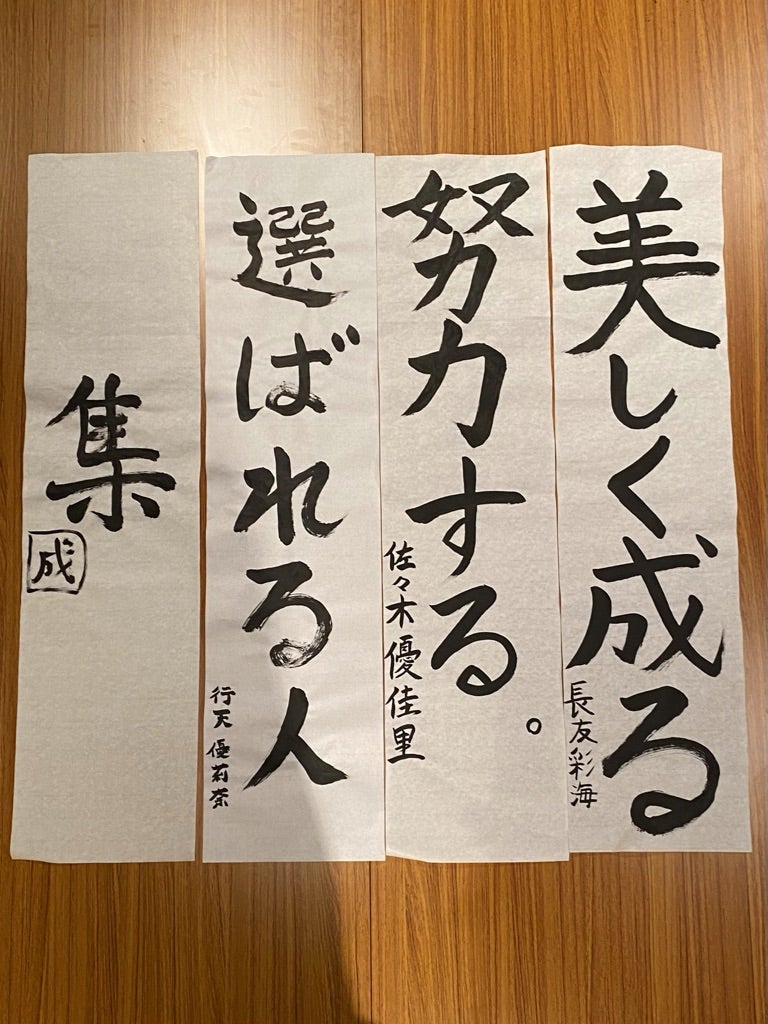 美しく成る
長友彩海
努力する。
佐々木優佳里
選ばれる人
行天優莉奈
集
成